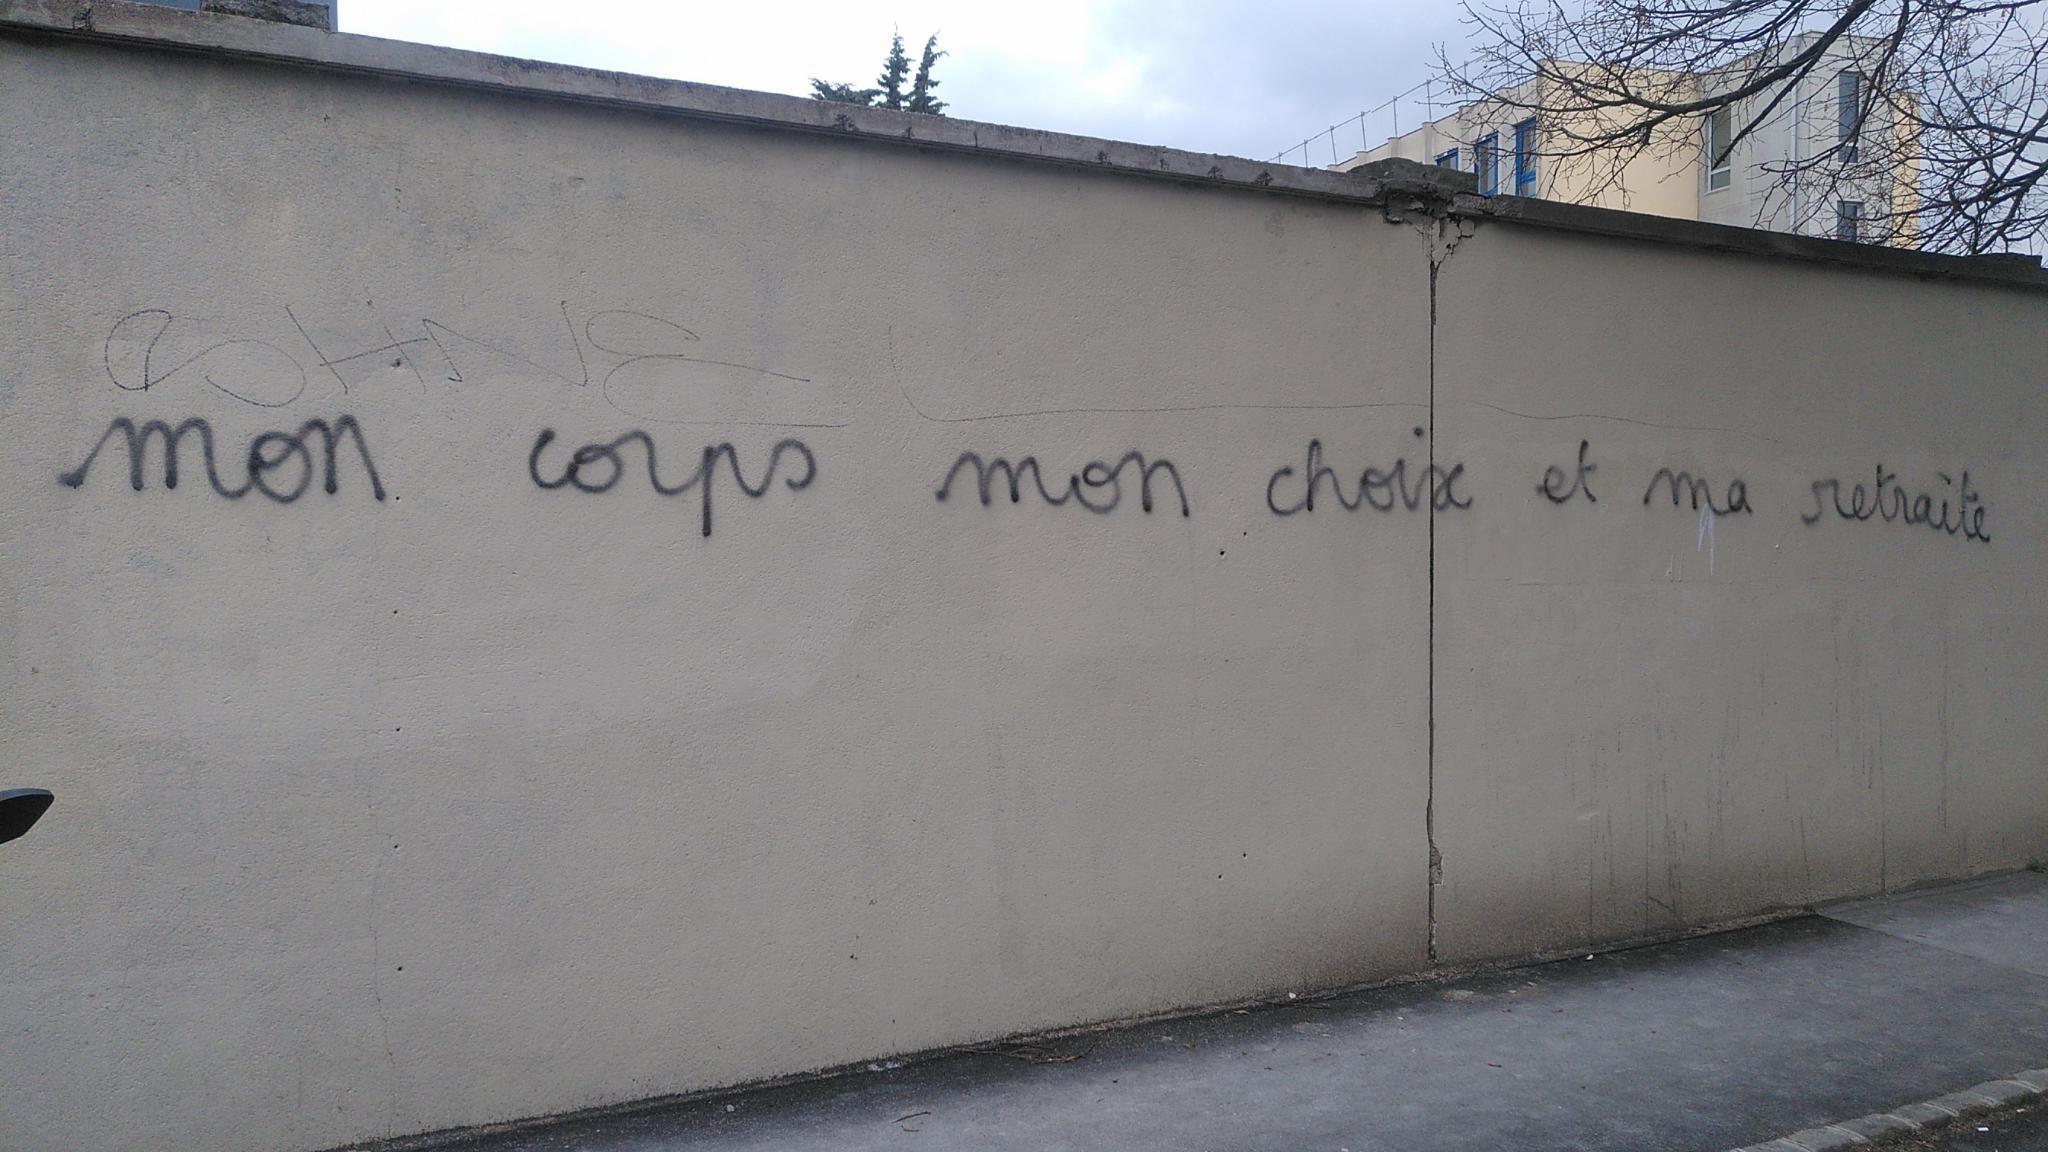 mon corps mon choix et ma retraite